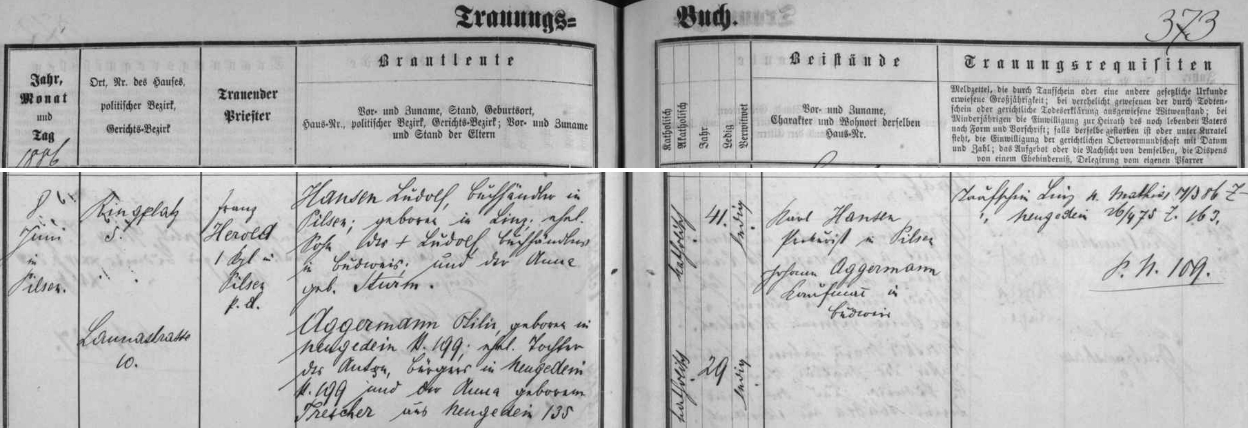 Trauungs=
Buch.
373
Jahr,
Monat
und
Tag
Ort, Nr. des Hauses,
politischer Bezirk,
Gerichts-Bezirk
Trauender
Priester
Brautleute
Vor- und Zuname, Stand, Geburtsort,
Haus-Nr., politischer Bezirk, Gerichts-Bezirk; Vor- und Zuname
und Stand der Eltern
Katholisch
Akatholisch
Jahr
Ledig
Verwitwet
Beistände
Vor- und Zuname,
Charakter und Wohnort derselben
Haus-Nr.
Trauungsrequisiten
Meldzettel, die durch Taufschein oder eine andere gesetzliche Urkunde
erwiesene Großjährigkeit; bei verehelicht gewesenen der durch Todten-
schein oder gerichtliche Todeserklärung ausgewiesene Witwenstand; bei
Minderjährigen die Einwilligung zur Heirath des noch lebenden Vaters
nach Form und Vorschrift; falls derselbe gestorben ist oder unter Kuratel
steht, die Einwilligung der gerichtlichen Obervormundschaft mit Datum
und Zahl; das Aufgebot oder die Nachsicht von demselben, die Dispens
von einem Ehehinderniß, Delegirung vom eigenen Pfarrer
1886
8
Juni
in
Pilsen.
Ringplatz
5.
Franz
Herold
Pilsen
Hansen Ludolf, Buchhändler in
Pilsen; geboren in Linz; ehel.
Sohn des + Ludolf, Buchhändlers
in Budweis; und der Anna
geb. Sturm.
katholisch
41.
ledig
Karl Hansen
Prokurist in Pilsen
Johann Aggermann
Kaufmann in
Budweis
Taufschein Linz
Neugedein 26/4 75 Z. 163.
P. N. 109.
10.
Aggermann Otilie, geboren in
Neugedein N. 199; ehel. Tochter
des Anton, Bürgers in Neugedein
N. 199 und der Anna geborenen
Trescher aus Neugedein 135
katholisch
29
ledig